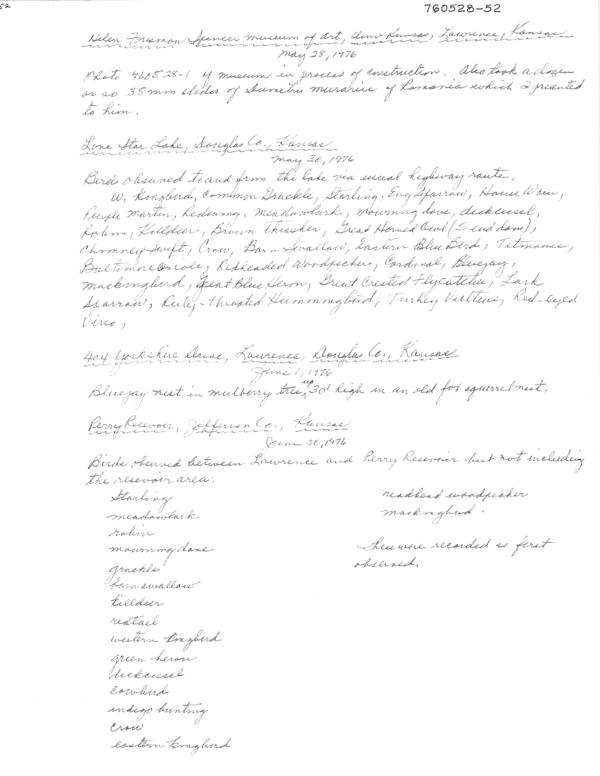 52
760528-52
Helen Foresman Spencer museum of Art, Univ Kansas, Lawrence, Kansas
May 28, 1976
Photo 760528-1 of museum in process of construction. Also took a dozen
or so 35mm slides of Dumitru of Romania which I presented
to him.
Lone Star Lake, Douglas Co., Kansas
May 30, 1976
Birds observed to and from the lake via usual highway route.
W. Kingbird, Common Grackle, Starling, Eng Sparrow, House Wren,
Purple Martin, Redwing, meadowlark, mourning dove, dickcissel,
Robin, Killdeer, Brown Thrasher, Great Horned Owl (S end dam),
Chimney Swift, Crow, Barn Swallow, Eastern Blue Bird, Titmouse,
Baltimore Oriole, Redheaded Woodpecker, Cardinal, Bluejay,
mockingbird, Great Blue Heron, Great Crested Flycatcher, Lark
Sparrow, Ruby-throated Hummingbird, Turkey Vulture, Red-eyed
Vireo,
404 Yorkshire Drive, Lawrence, Douglas Co., Kansas
June 1, 1976
Bluejay nest in mulberry tree, up 30' high in an old fox squirrel nest.
Perry Resevoir, Jefferson Co., Kansas
June 20, 1976
Birds observed between Lawrence and Perry Resevoir but not including
the resevoir area.
Starling
meadowlark
robin
mourning dove
grackle
barn swallow
killdeer
redtail
western kingbird
green heron
dickcissel
cowbird
indigo bunting
crow
eastern kingbird
readhead woodpecker
mockingbird.
These were recorded as first
observed.